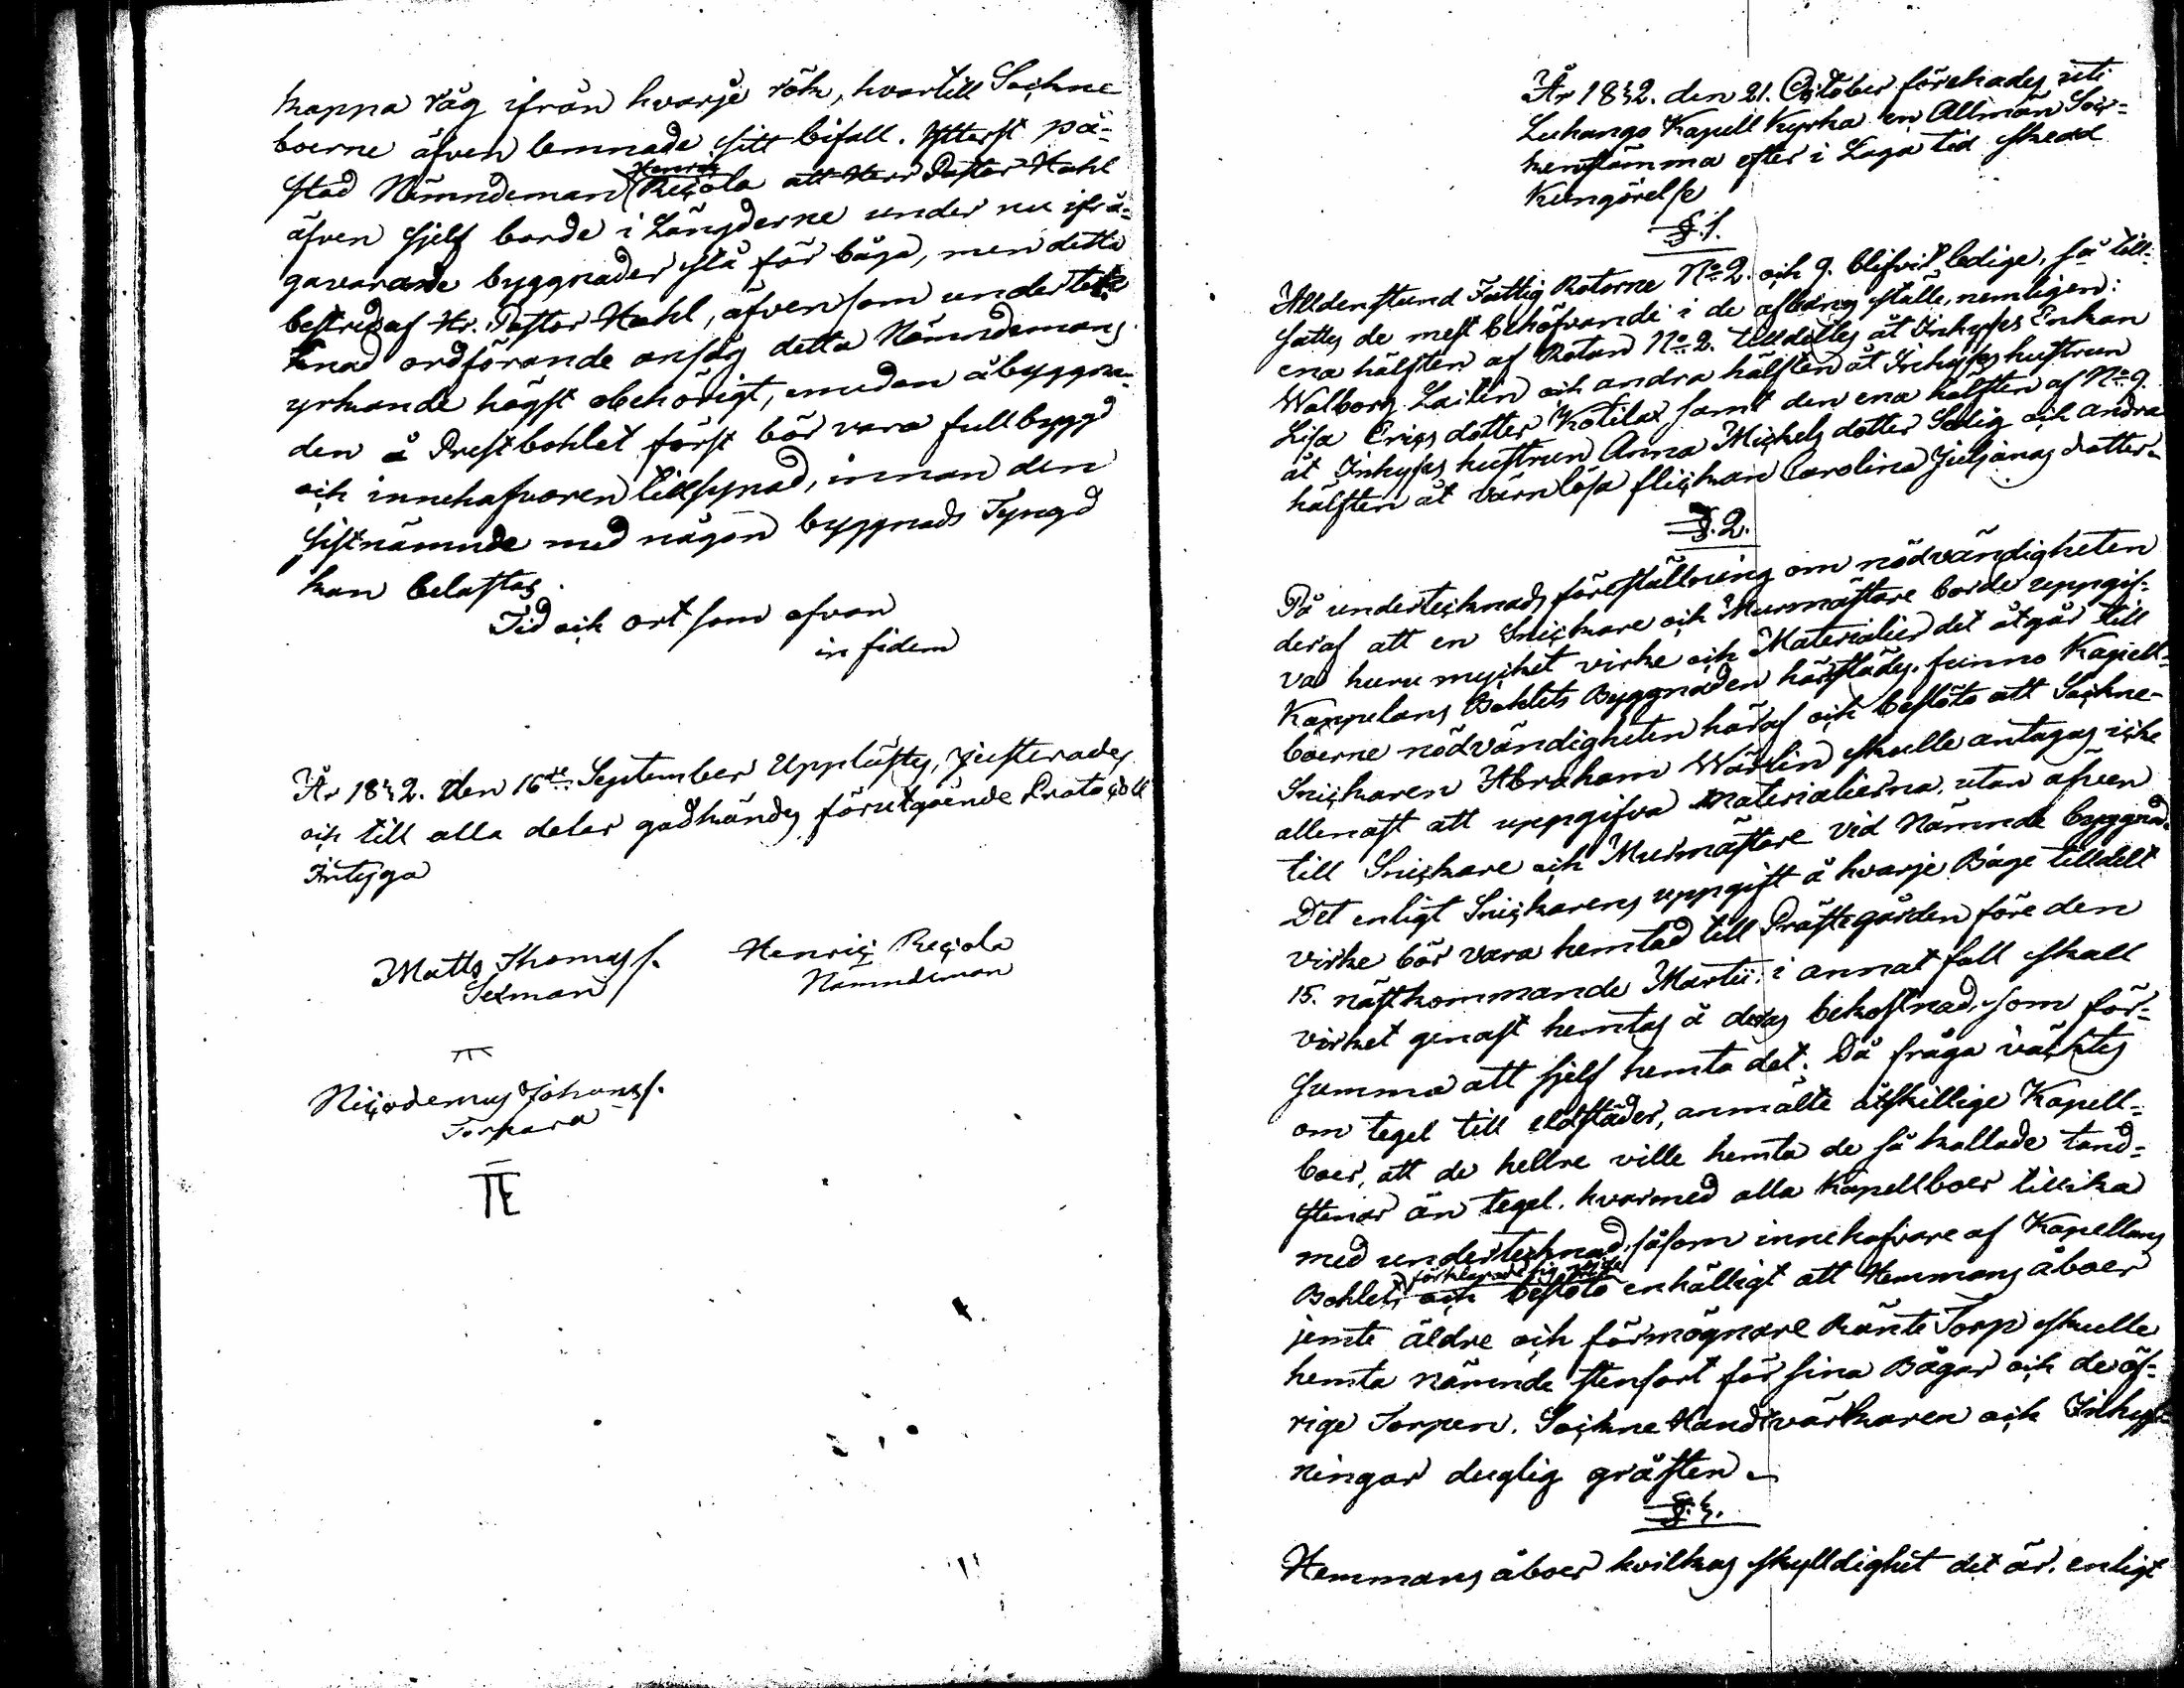 kappa råg ifrån hvarje rök, hvartill Sockne
boerne äfven lemnade sitt bifall. Ytterst på-
stod Nämndeman Henric Recola att Herr Pastor Hahl
äfven sjelf borde i Längderne under nu ifrå-
gavarande byggnader stå för båga, men detta
bestreds af Hr. Pastor Hahl, äfvensom underteck-
nad ordförande ansåg detta Nämndemans
yrkande högst obehörigt, emedan åbyggna-
den å Prestbohlet först bör vara fullbygd
och innehafvaren tillsynad, innan den
sistnämnde med någon byggnads Tyngd
kan belastas.
Tid och ort som ofvan
in fidem
År 1842. den 16de September Upplästes, justerades
och till alla delar godkändes förutgående Protocoll
Intyga
Matts Thomass.
Sexman
Henric Recola
Nämndeman
Nicodemus Johanss.
Torpara
TE
År 1842. den 21. October förehades uti
Luhango Kapell Kyrka en Allmän Soc-
kenstämma efter i Laga tid skedd
Kungörelse
§.1.
Alldenstund Fattig Rotorne No 2. och 9. blifvit ledige, så till-
sattes de mest behöfvande i de aflednes ställe, nemligen:
ena hälften af Rotan No 2. tilldeltes åt Inhyses Enkan
Walborg Laitin och andra hälften åt Inhyses hustrun
Lisa Erics dotter Kotilax samt den ena hälften af No 9.
åt Inhyses hustrun Anna Michels dotter Selig och andra
hälften åt värnlösa flickan Carolina Juljanas dotter.
§.2.
På undertecknads föreställning om nödvändigheten
deraf att en Snickare och Murmästare borde uppgif-
va huru mycket virke och Materialier det åtgår till
Kappelans Bohlets Byggnaden härstädes. funno Kapell-
boerne nödvändigheten häraf och beslöto att Sockne-
Snickaren Abraham Wärlin skulle antagas icke
allenast att uppgifva Materialierna, utan äfven
till Snickare och Murmästare vid Nämnde byggnad.
Det enligt Snickarens uppgift å hvarje Båge tilldelt
virke bör vara hemtad till Prästegården före den
15. nästkommande Martii; i annat fall skall
virket genast hemtas å deras bekostnad, som för-
summa att sjelf hemta det. Då fråga väcktes
om tegel till eldstäder, anmälte åtskillige Kapell-
boer, att de hellre ville hemta de så kallade tand-
stenar än tegel. hvarmed alla Kapellboer tillika
med undertecknad, såsom innehafvare af Kapellans
Bohlet, förklarade sig nöjde och beslöto enhälligt att Hemmans åboer
jemte äldre och förmögnare Ränte Torp skulle
hemta nämnde stensort för sina Bågar och de öf-
rige Torpen. Sockne Handtvärkaren och Inhys-
ningar duglig gråsten.
§.3.
Hemmans åboer hvilkas skylldighet det är. enligt